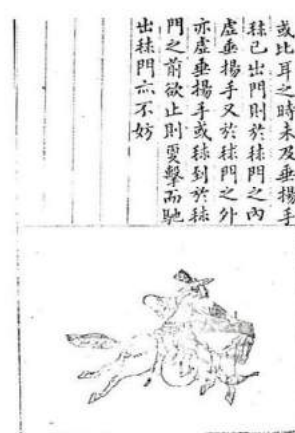 或比耳之時未及垂揚手
毬已出門則於毬門之內
虛垂揚手又於毬門之外
亦虛垂揚手或毬到於毬
門之前欲止則更擊而馳
出毬門亦不妨